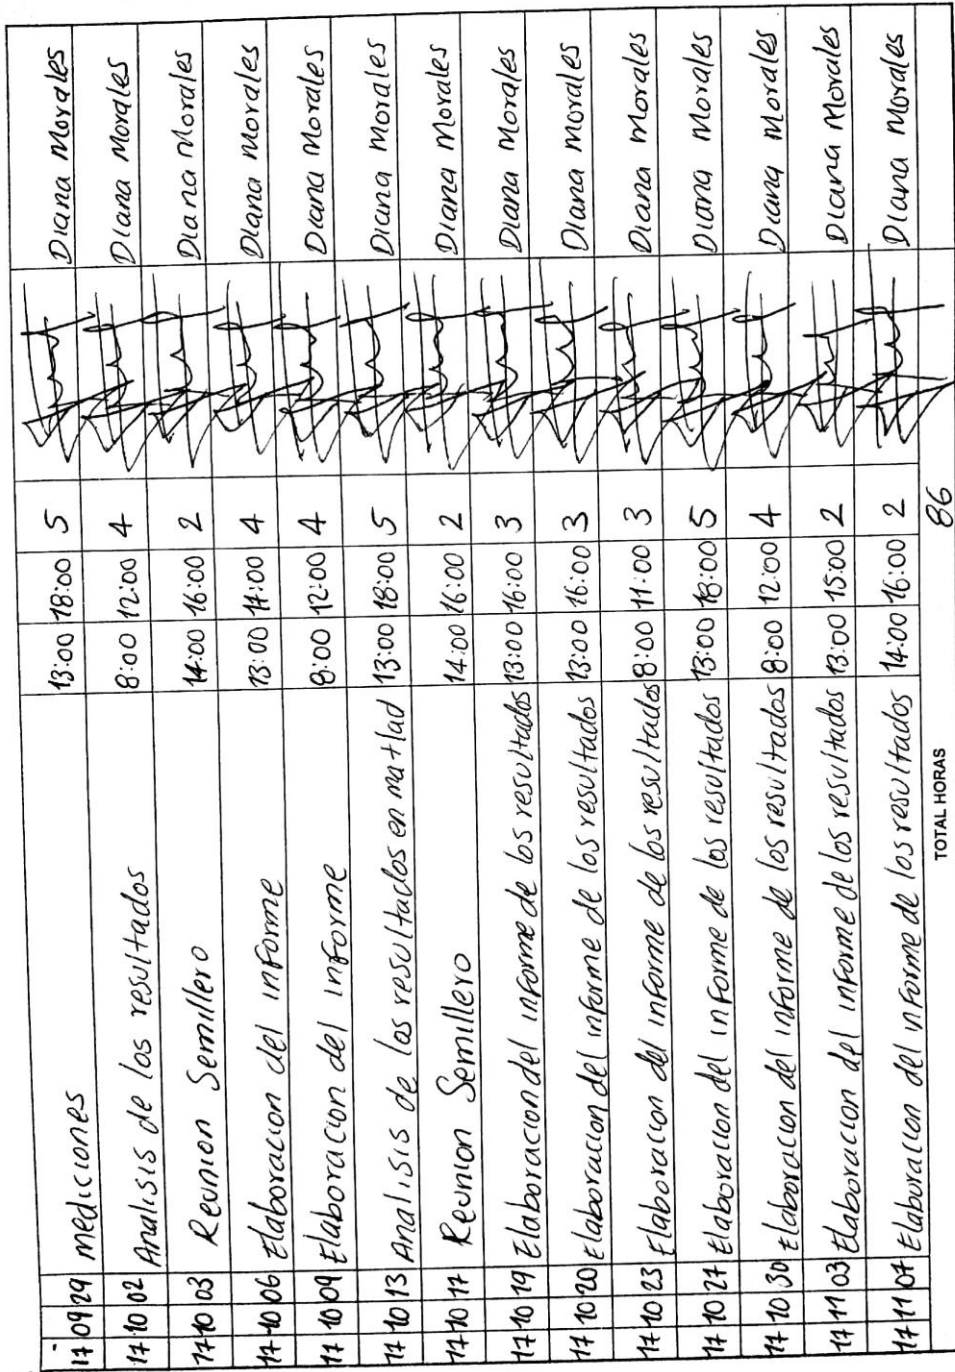 17 09 29 mediciones 13:00 18:00 5 Diana Morales
17 10 02 Analisis de los resultados 8:00 12:00 4 Diana Morales
17 10 03 Reunion Semillero 14:00 16:00 2 Diana Morales
17 10 06 Elaboracion del informe 13:00 17:00 4 Diana Morales
17 10 09 Elaboracion del informe 8:00 12:00 4 Diana Morales
17 10 13 Analisis de los resultados en matlad 13:00 18:00 5 Diana Morales
17 10 17 Reunion Semillero 14:00 16:00 2 Diana Morales
17 10 19 Elaboracion del informe de los resultados 13:00 16:00 3 Diana Morales
17 10 20 Elaboracion del informe de los resultados 13:00 16:00 3 Diana Morales
17 10 23 Elaboracion del informe de los resultados 8:00 11:00 3 Diana Morales
17 10 27 Elaboracion del informe de los resultados 13:00 18:00 5 Diana Morales
17 10 30 Elaboracion del informe de los resultados 8:00 12:00 4 Diana Morales
17 11 03 Elaboracion del informe de los resultados 13:00 15:00 2 Diana Morales
17 11 07 Elaboracion del informe de los resultados 14:00 16:00 2 Diana Morales
TOTAL HORAS 86